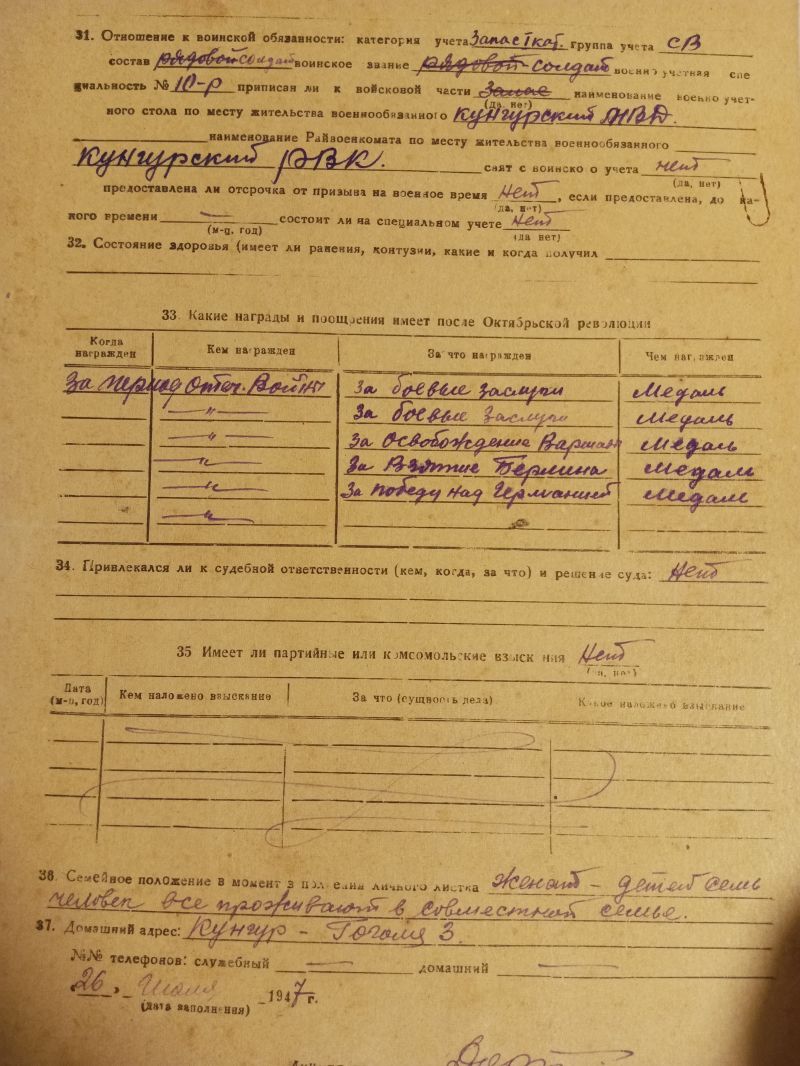 31. Отношение к воинской обязанности: категория учета Запас I кат. группа учета СВ
состав рядовой солдат воинское звание рядовой - солдат военно учетная спе
циальность № 10-р приписан ли к войсковой части Запас наименование военно учет-
(да, нет)
ного стола по месту жительства военнообязанного Кунгурский МВД.
наименование Райвоенкомата по месту жительства военнообязанного
Кунгурский РВК. снят с воинско о учета нет
(да, нет)
предоставлена ли отсрочка от призыва на военное время Нет, если предоставлена, до ка-
(да, нет)
ного времени — состоит ли на специальном учете Нет
(м-ц. год) (да нет)
32. Состояние здоровья (имеет ли ранения, контузии, какие и когда получил
33. Какие награды и поощрения имеет после Октябрьской революции
Когда награжден Кем награжден За что награжден Чем награжден
За период Отеч. Войны За боевые заслуги Медаль
—"— За боевые заслуги Медаль
—"— За Освобождение Варшавы Медаль
—"— За Взятие Берлина Медаль
—"— За победу над Германией Медаль
—"—
34. Привлекался ли к судебной ответственности (кем, когда, за что) и решение суда: Нет
35 Имеет ли партийные или комсомольские взыск ния Нет
(да, нет)
Дата (м-ц, год) Кем наложено взыскание За что (сущность дела) Какое наложено взыскание
36. Семейное положение в момент з полнения личного листка женат - детей семь
человек все проживают в совместной семье.
37. Домашний адрес: Кунгур - Гоголя 3.
№№ телефонов: служебный — домашний —
26. Июля 1947 г.
(дата заполнения)